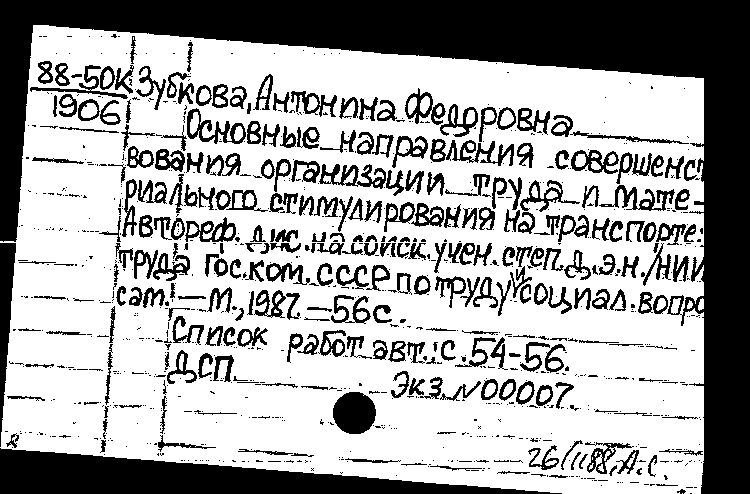 88-50К Зубкова, Антонина Федоровна
1906
Основные направления совершенст
вования организации труда и мате-
риального стимулирования на транспорте:
Автореф. дис. на соиск. учен. степ. д.э.н./НИИ
труда Гос. ком. СССР по труду и социал. вопро
сам. — М., 1987. — 56с.
Список работ авт.: с. 54-56.
ДСП. Экз. №00007.
26/I 88, А.С.